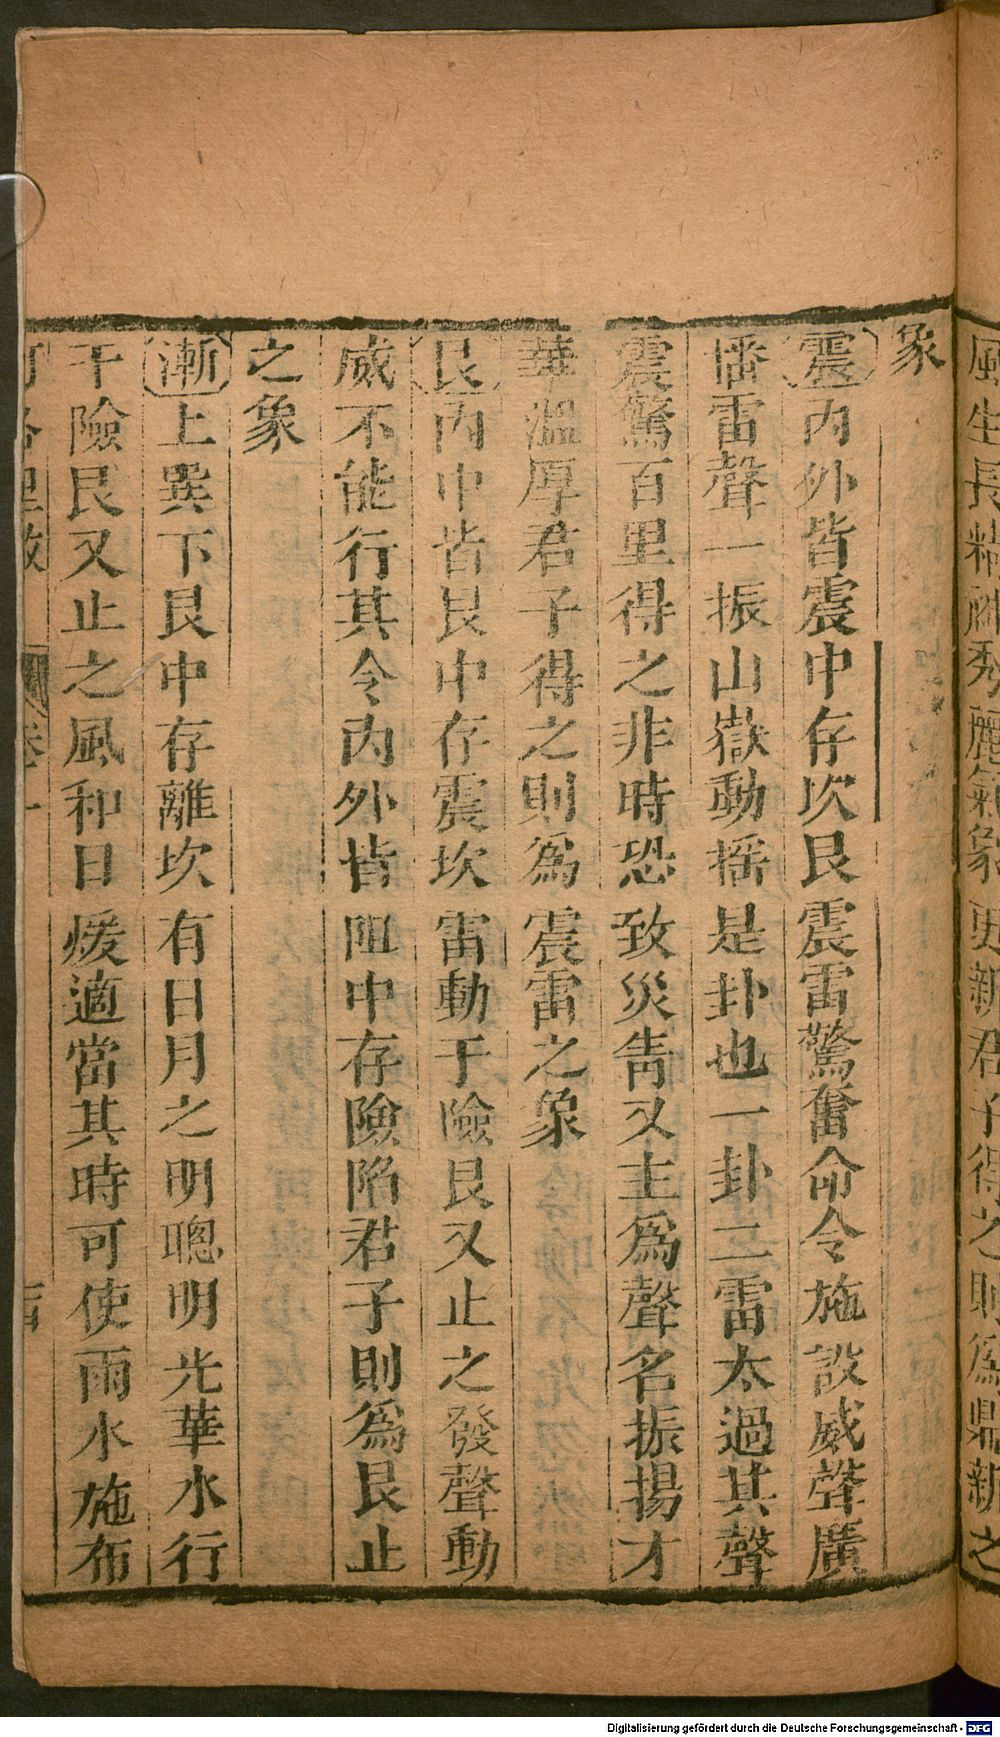 風生長精神秀麗氣象更新君子得之則為鼎新之
象
震內外皆震中存坎艮震雷驚奮命令施設威聲廣
播雷聲一振山嶽動搖是卦也一卦二雷太過其聲
震驚百里得之非時恐致災眚又主爲聲名振揚才
華溫厚君子得之則爲震雷之象
艮內中皆艮中存震坎雷動于險艮又止之發聲動
威不能行其令內外皆阻中存險陷君子則爲艮止
之象
漸上巽下艮中存離坎有日月之明聰明光華水行
于險艮又止之風和日煖適當其時可使雨水施布
河洛理數 卷一
Digitalisierung gefördert durch die Deutsche Forschungsgemeinschaft - DFG